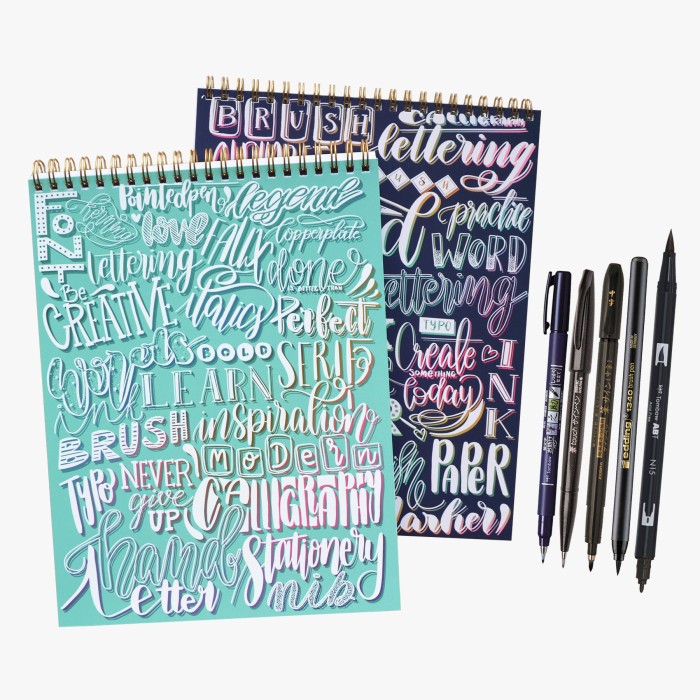 FONT
Pointed pen
legend
love
FAUX
Copperplate
lettering
done
IS BETTER THAN
Be
CREATIVE
italics
Perfect
words
BOLD
SERIF
ink
LEARN
BRUSH
inspiration
MODERN
TYPO
NEVER
give
UP
CALLIGRAPHY
hand
letter
Stationery
nib
BRUSH
lettering
BRUSH
practice
WORD
lettering
TYPO
Create
SOMETHING
today
INK
PAPER
marker
Tombow ABT
N15